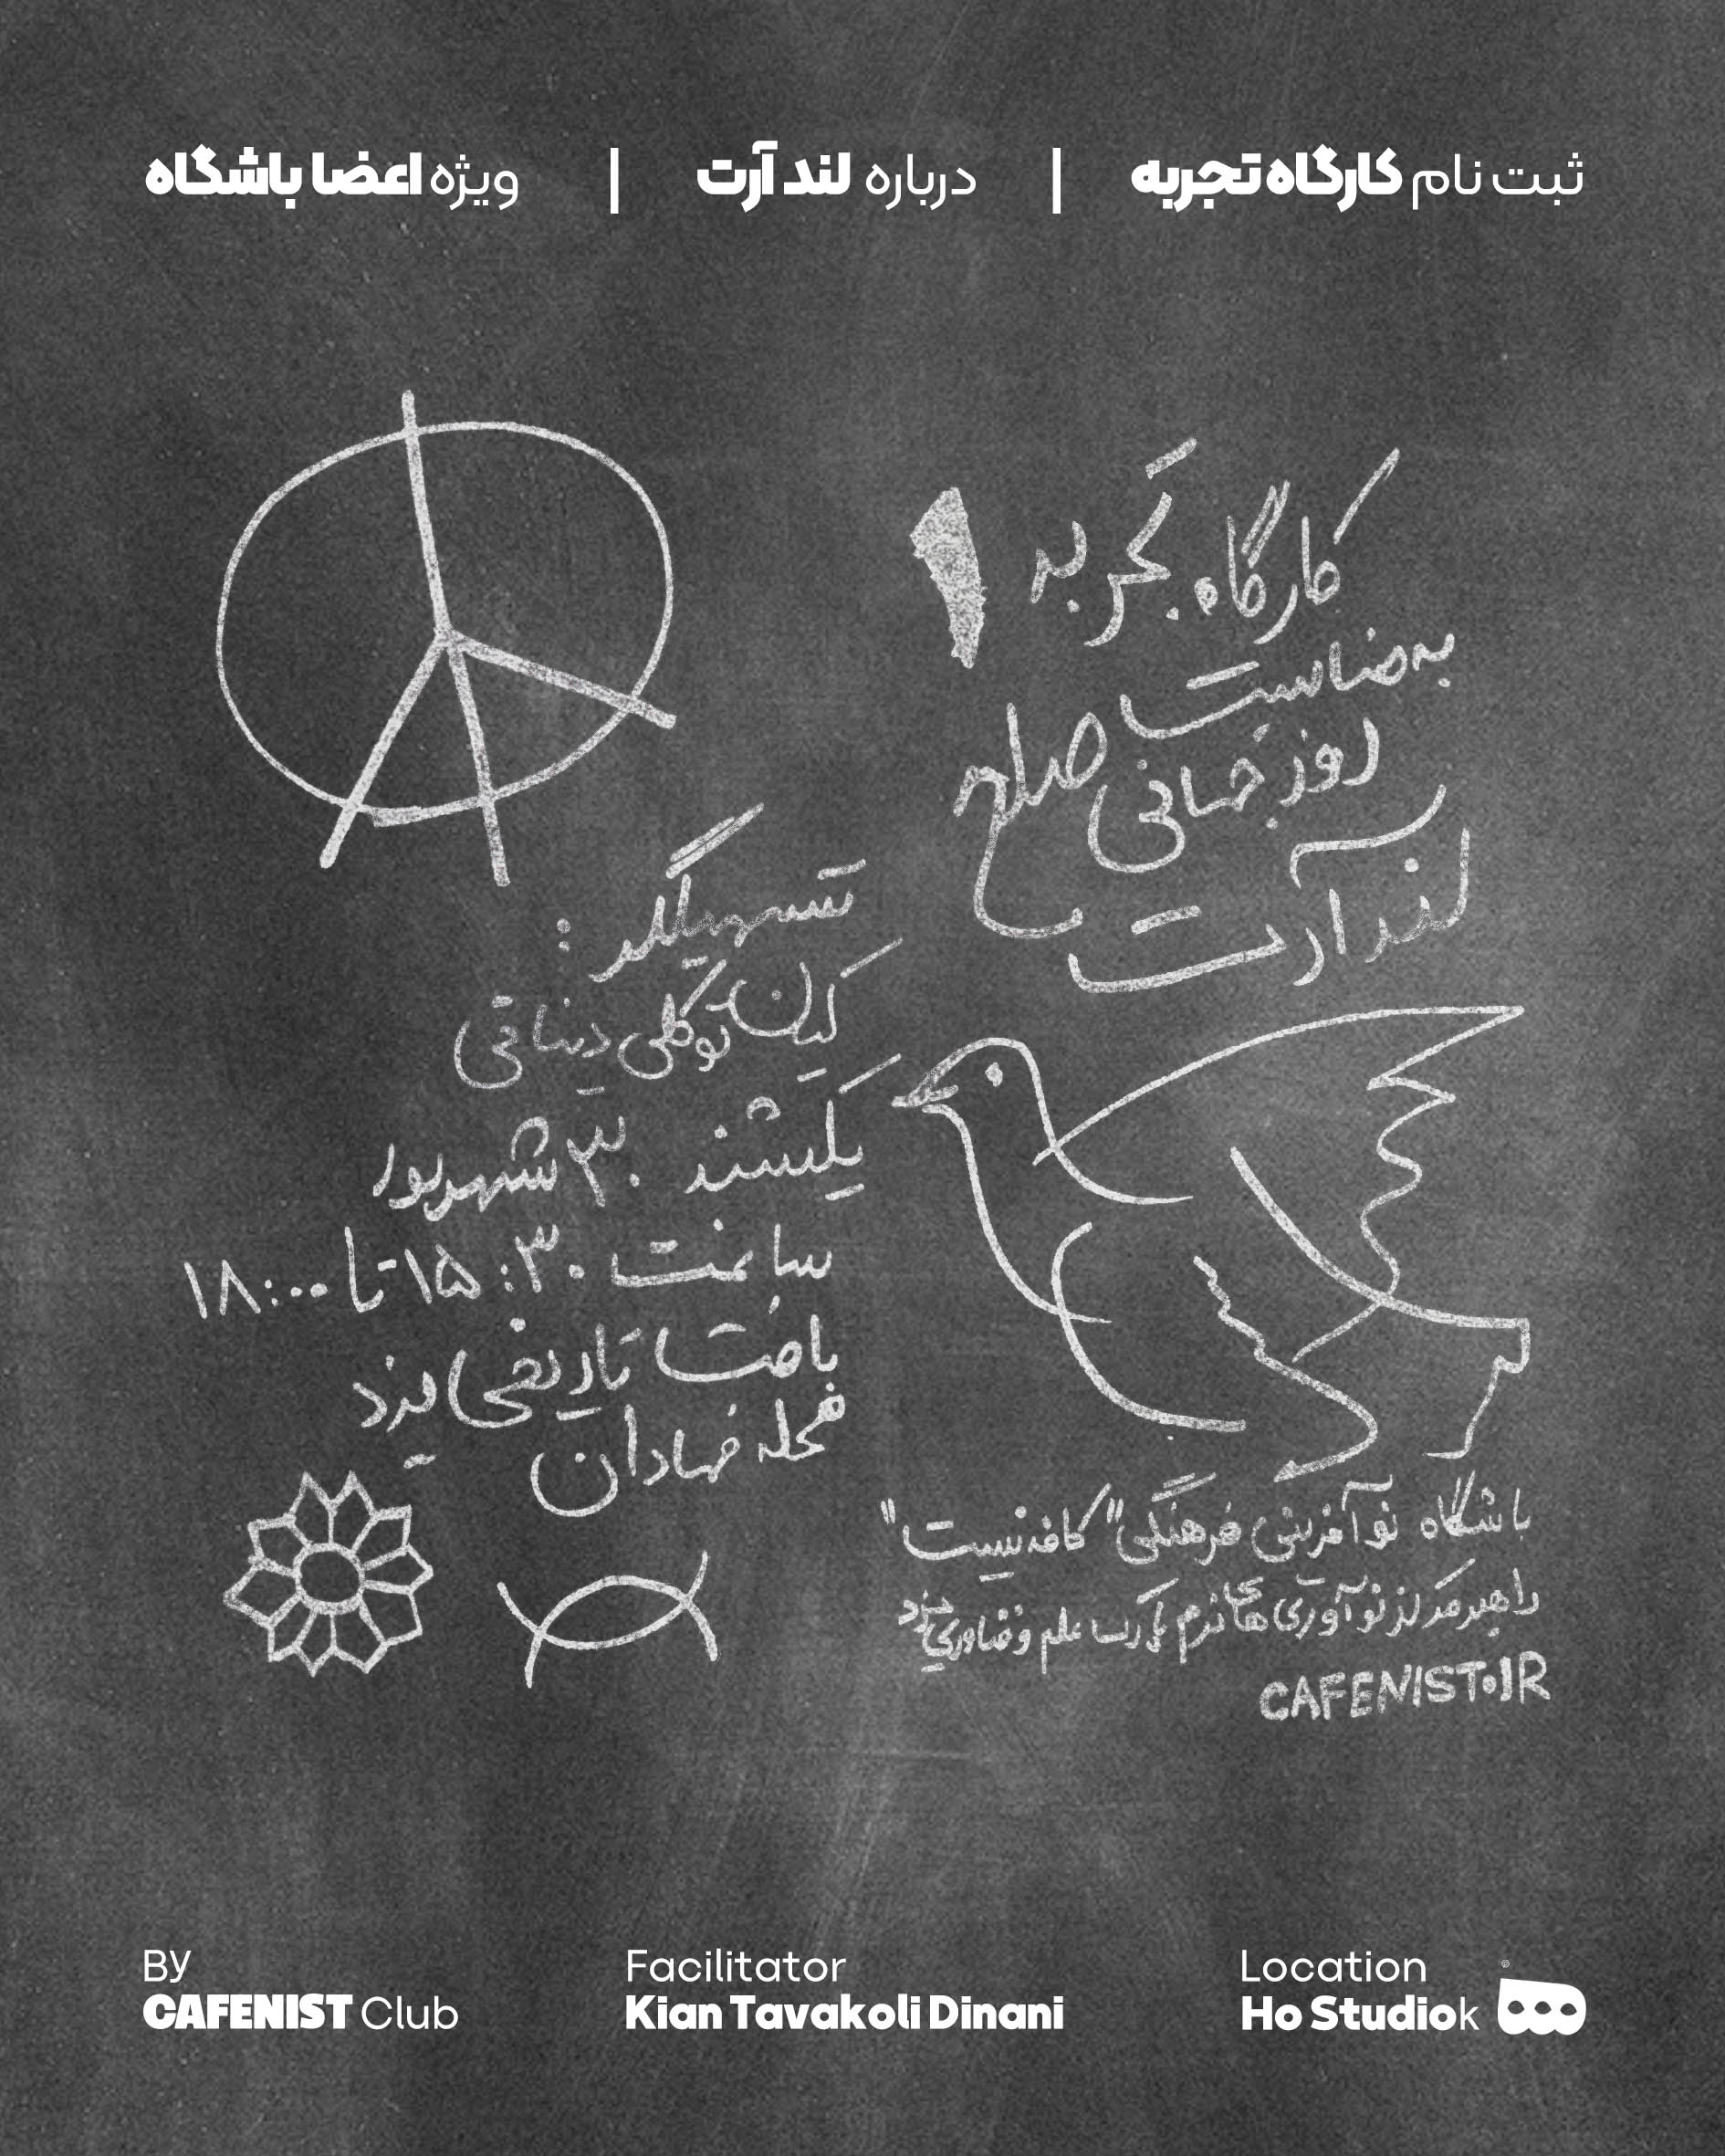 ثبت نام کارگاه تجربه | درباره لند آرت | ویژه اعضا باشگاه
کارگاه تجربه ۱
به مناسبت
روز جهانی صلح
لند آرت
تسهیلگر :
کیان توکلی دینانی
یکشنبه ۳۰ شهریور
ساعت ۱۵:۳۰ تا ۱۸:۰۰
بافت تاریخی یزد
محله فهادان
باشگاه نوآفرینی فرهنگی "کافه نیست"
راهبر مرکز نوآوری های نرم پارک علم و فناوری یزد
CAFENIST.IR
By
CAFENIST Club
Facilitator
Kian Tavakoli Dinani
Location
Ho Studiok